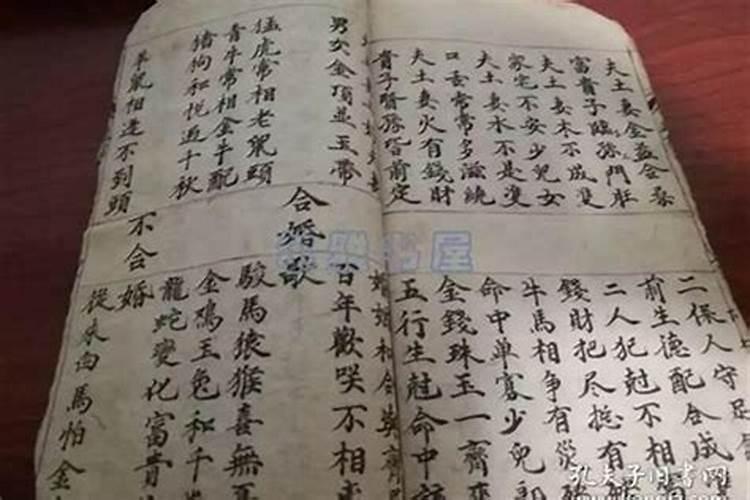 夫土妻金益合
富貴子臨孫門
夫土妻木不成雙
家宅不安少児女
夫土妻水不是雙
口舌常常多滋繞
夫土妻火有錢財
貴子賢孫皆前定
二保人守足
前生德配合成
二人犯尅不相
錢財把尽有
牛馬相争有災
命中单寡少児郎
金錢珠玉一齊來
五行生尅命中該
婚姻和合莫
男女金頂並玉帶
猛虎常相老鼠頭
青牛常相金牛配
猪狗和悦过千秋
羊鼠相逢不到頭
合婚歌
百年歡咲不相
駿馬猿猴喜無
金鸡玉兔和千
龍蛇變化富貴
不合婚
從来白馬怕金
书屋
孔夫子旧书网